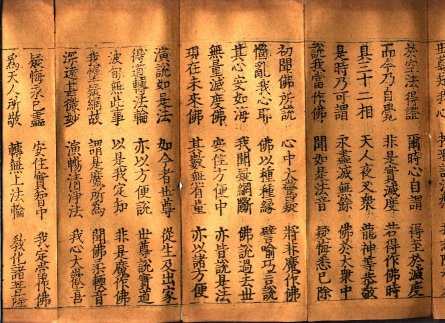 於空法得證 爾時心自謂 得至於滅度
而今乃自覺 非是實滅度 若得作佛時
具三十二相 天人夜叉眾 龍神等恭敬
是時乃可謂 永盡滅無餘 佛於大眾中
說我當作佛 聞如是法音 疑悔悉已除
初聞佛所說 心中大驚疑 將非魔作佛
惱亂我心耶 佛以種種緣 譬喻巧言說
其心安如海 我聞疑網斷 佛說過去世
無量滅度佛 安住方便中 亦皆說是法
現在未來佛 其數無有量 亦以諸方便
演說如是法 如今者世尊 從生及出家
得道轉法輪 亦以方便說 世尊說實道
波旬無此事 以是我定知 非是魔作佛
我墮疑網故 謂是魔所為 聞佛柔軟音
深遠甚微妙 演暢清淨法 我心大歡喜
疑悔永已盡 安住實智中 我定當作佛
為天人所敬 轉無上法輪 教化諸菩薩